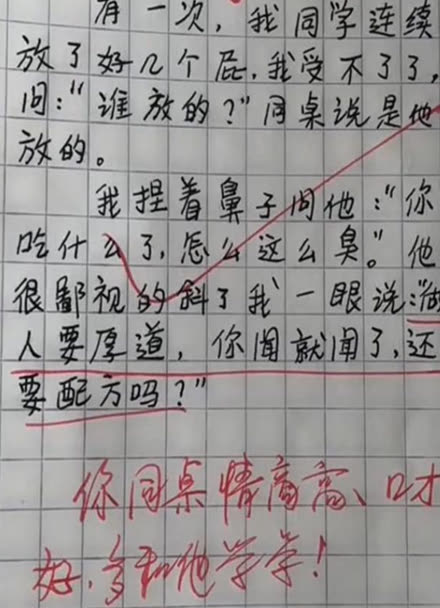 有一次，我同学连续
放了好几个屁，我受不了了，
问：“谁放的？”同桌说是他
放的。
我捏着鼻子问他：“你
吃什么了，怎么这么臭。”他
很鄙视的斜了我一眼说：“做
人要厚道，你闻就闻了，还
要配方吗？”
你同桌情商高、口才
好，多和他学学！